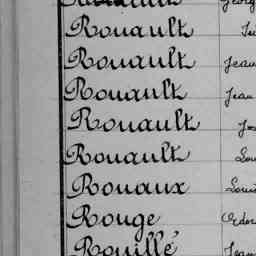 Rouault
Rouault Jean
Rouault Jean
Rouault
Rouault
Rouaux Louis
Rouge
Rouillé Jean